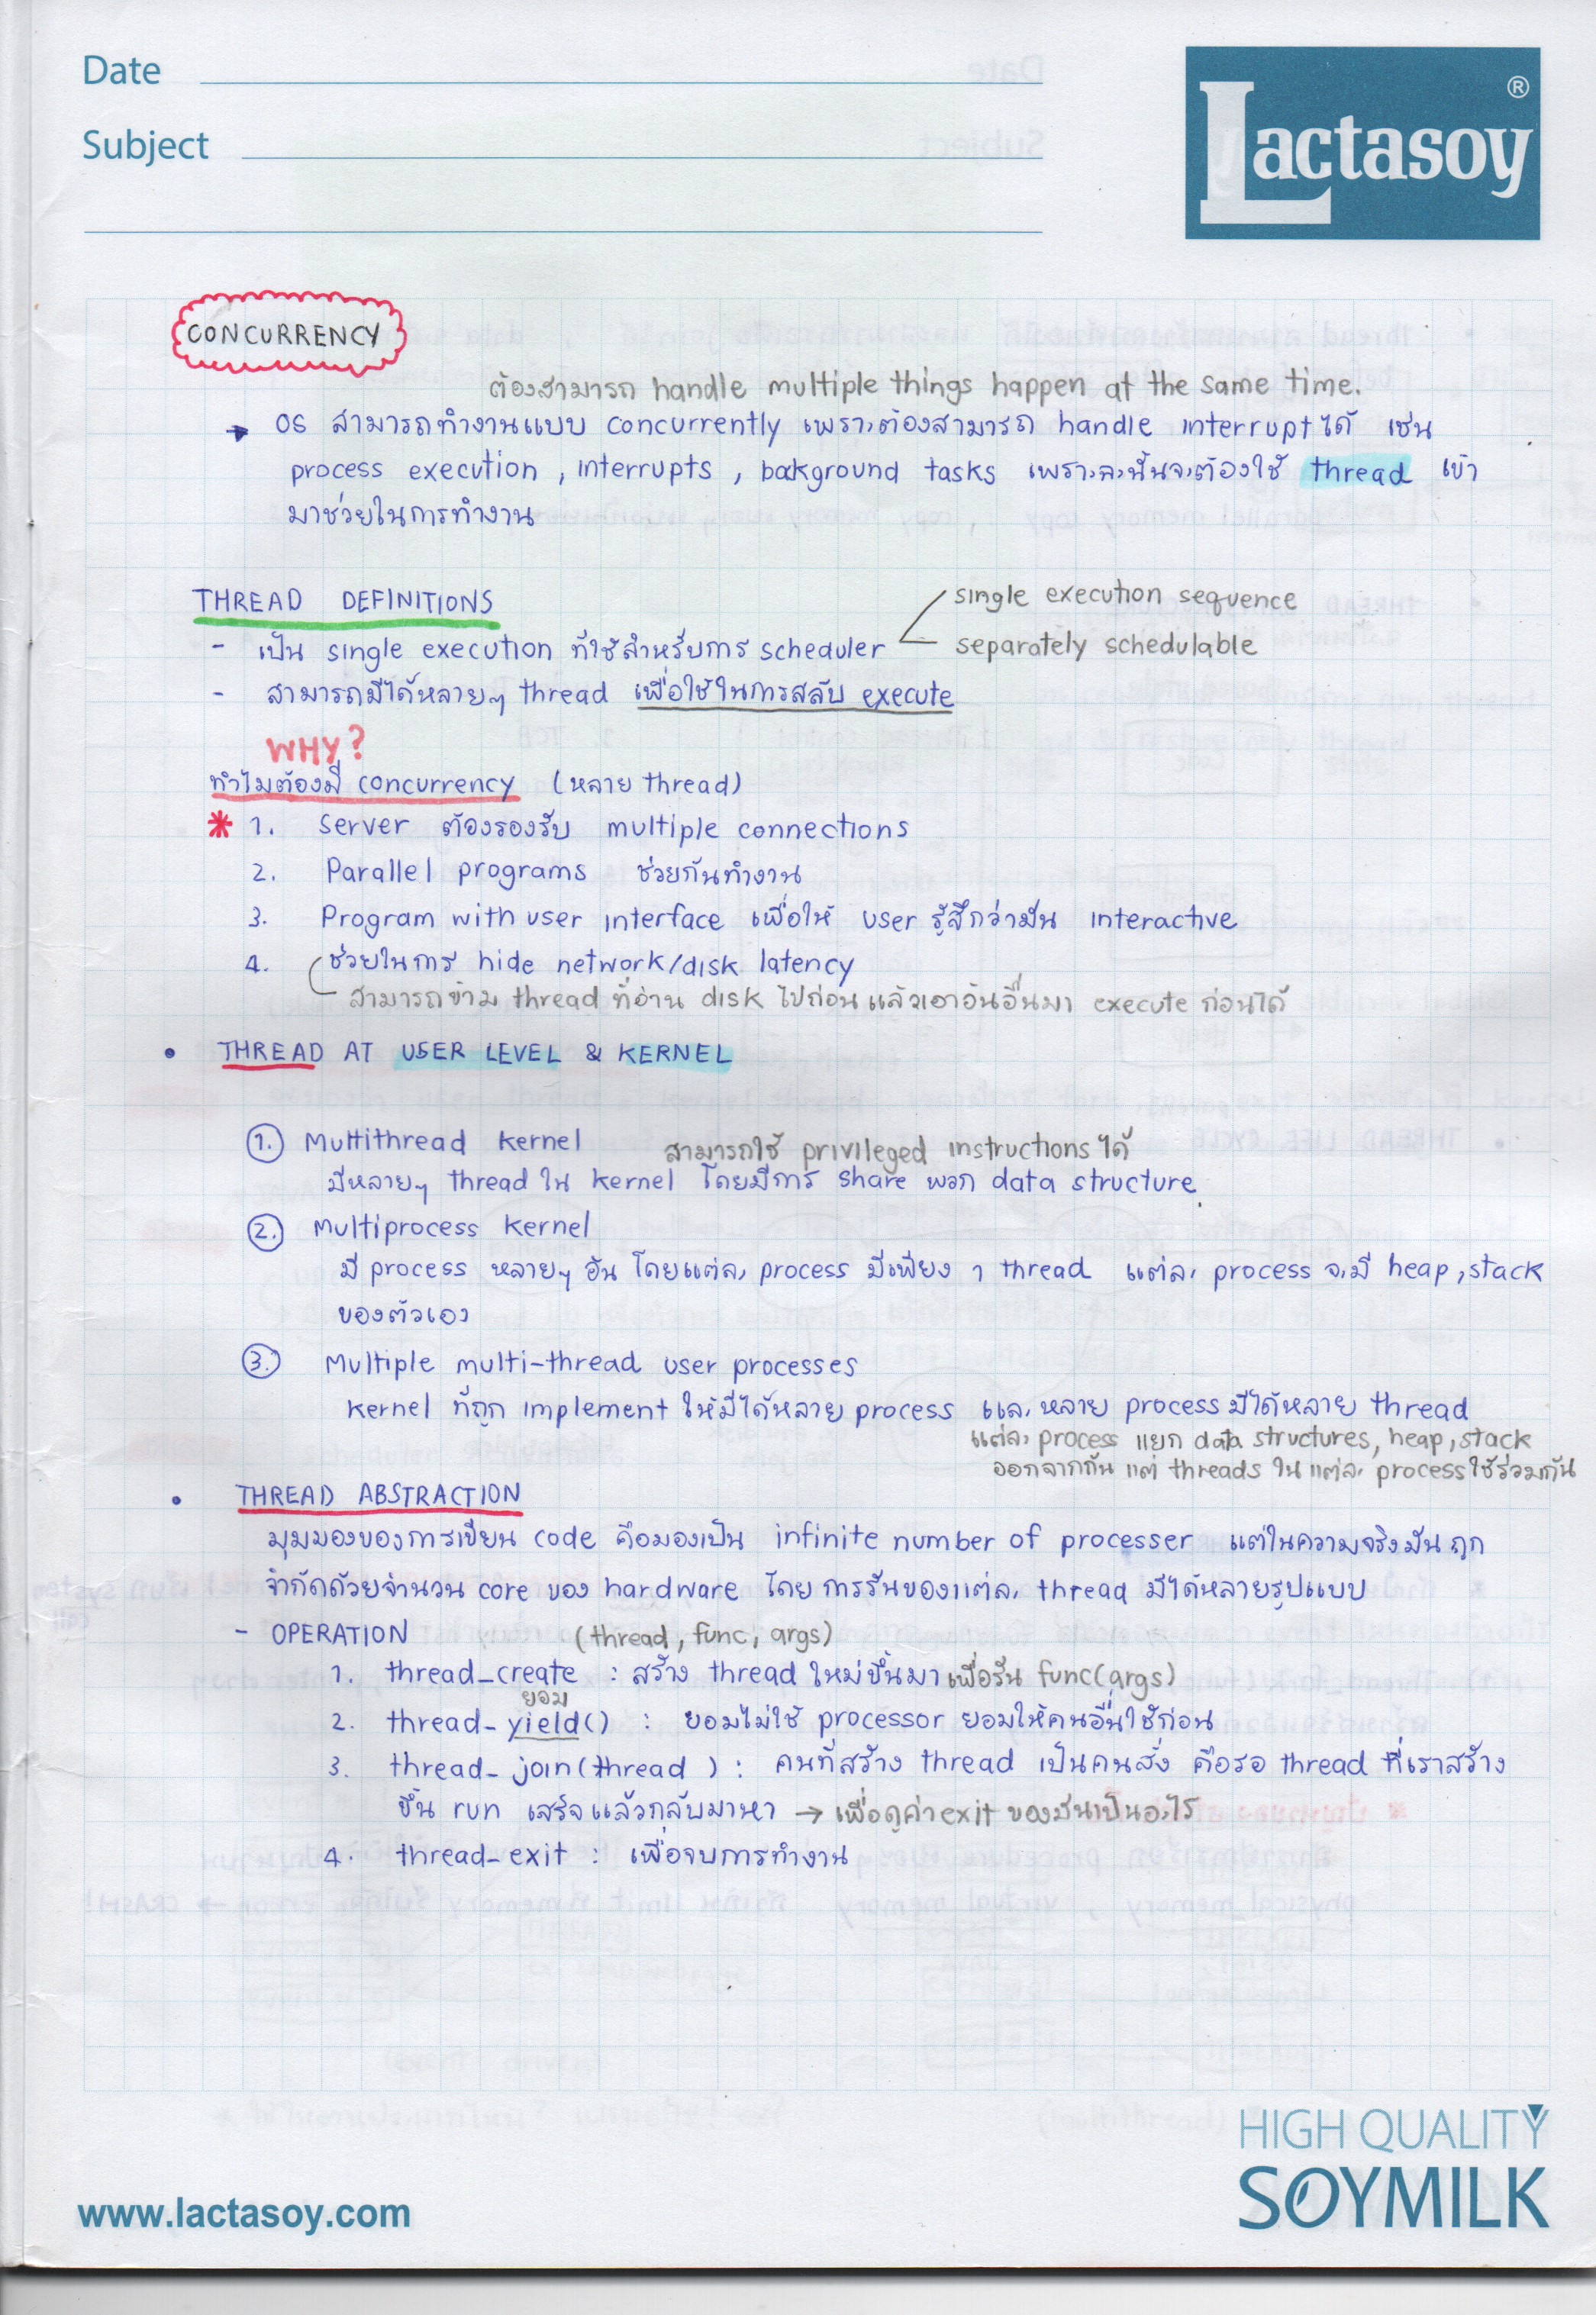 Date
Subject
Lactasoy ®
CONCURRENCY
ต้องสามารถ handle multiple things happen at the same time.
→ OS สามารถทำงานแบบ concurrently เพราะต้องสามารถ handle interrupt ได้ เช่น
process execution , interrupts , background tasks เพราะฉะนั้นจะต้องใช้ thread เข้า
มาช่วยในการทำงาน
THREAD DEFINITIONS
single execution sequence
- เป็น single execution ที่ใช้สำหรับการ scheduler
separately schedulable
- สามารถมีได้หลายๆ thread เพื่อใช้ในการสลับ execute
WHY?
ทำไมต้องมี concurrency (หลาย thread)
* 1. Server ต้องรองรับ multiple connections
2. Parallel programs ช่วยกันทำงาน
3. Program with user interface เพื่อให้ user รู้สึกว่ามัน interactive
4. ช่วยในการ hide network/disk latency
สามารถข้าม thread ที่อ่าน disk ไปก่อน แล้วเอาอันอื่นมา execute ก่อนได้
• THREAD AT USER LEVEL & KERNEL
1. Multithread kernel สามารถใช้ privileged instructions ได้
มีหลายๆ thread ใน kernel โดยมีการ share พวก data structure
2. Multiprocess kernel
มี process หลายๆ อัน โดยแต่ละ process มีเพียง 1 thread แต่ละ process จะมี heap, stack
ของตัวเอง
3. Multiple multi-thread user processes
kernel ที่ถูก implement ให้มีได้หลาย process และ หลาย process มีได้หลาย thread
แต่ละ process แยก data structures, heap, stack
ออกจากกัน แต่ threads ใน แต่ละ process ใช้ร่วมกัน
• THREAD ABSTRACTION
มุมมองของการเขียน code คือมองเป็น infinite number of processer แต่ในความจริงมันถูก
จำกัดด้วยจำนวน core ของ hardware โดย การรันของแต่ละ thread มีได้หลายรูปแบบ
- OPERATION (thread, func, args)
1. thread_create : สร้าง thread ใหม่ขึ้นมา เพื่อรัน func(args)
ยอม
2. thread_yield() : ยอมไม่ใช้ processor ยอมให้คนอื่นใช้ก่อน
3. thread_join(thread) : คนที่สร้าง thread เป็นคนสั่ง คือรอ thread ที่เราสร้าง
ขึ้น run เสร็จแล้วกลับมาหา → เพื่อดูค่า exit ของมันเป็นอะไร
4. thread_exit : เพื่อจบการทำงาน
HIGH QUALITY
SOYMILK
www.lactasoy.com